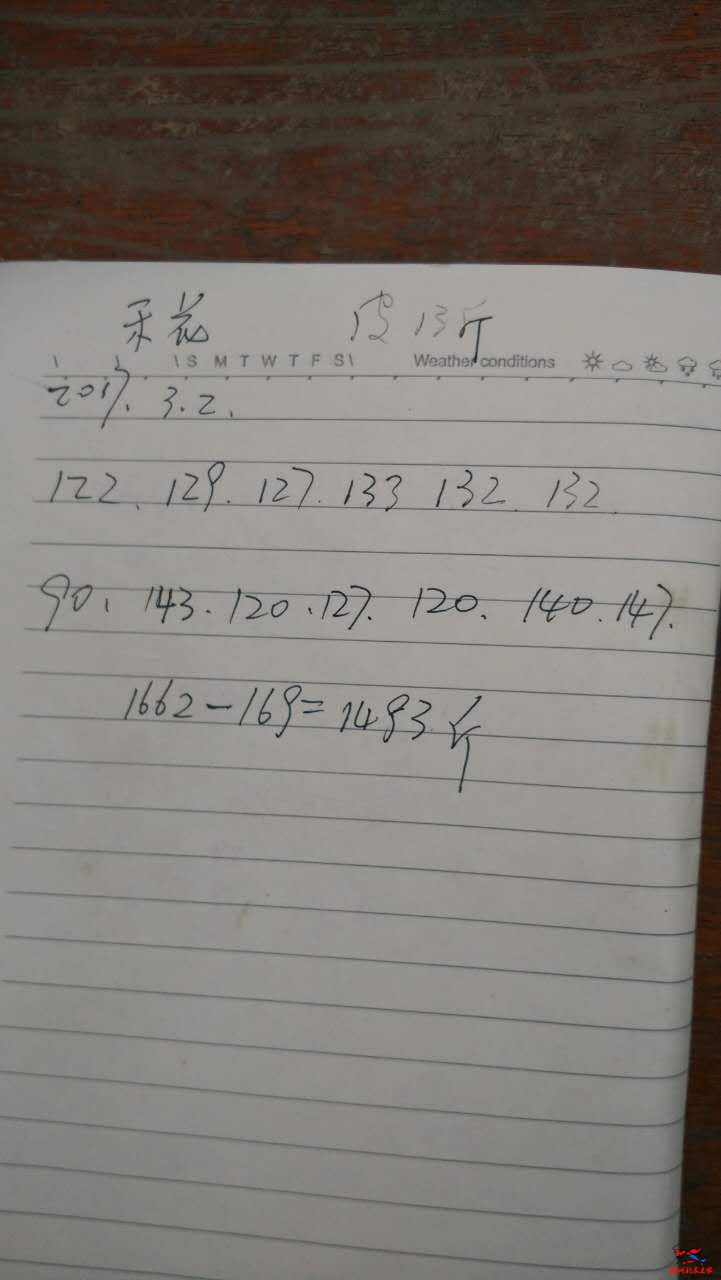 禾花 皮13斤
S M T W T F S Weather conditions
2017. 3.2.
122. 129. 127. 133 132. 132.
90、143.120.127. 120. 140.147.
1662-169=1493斤